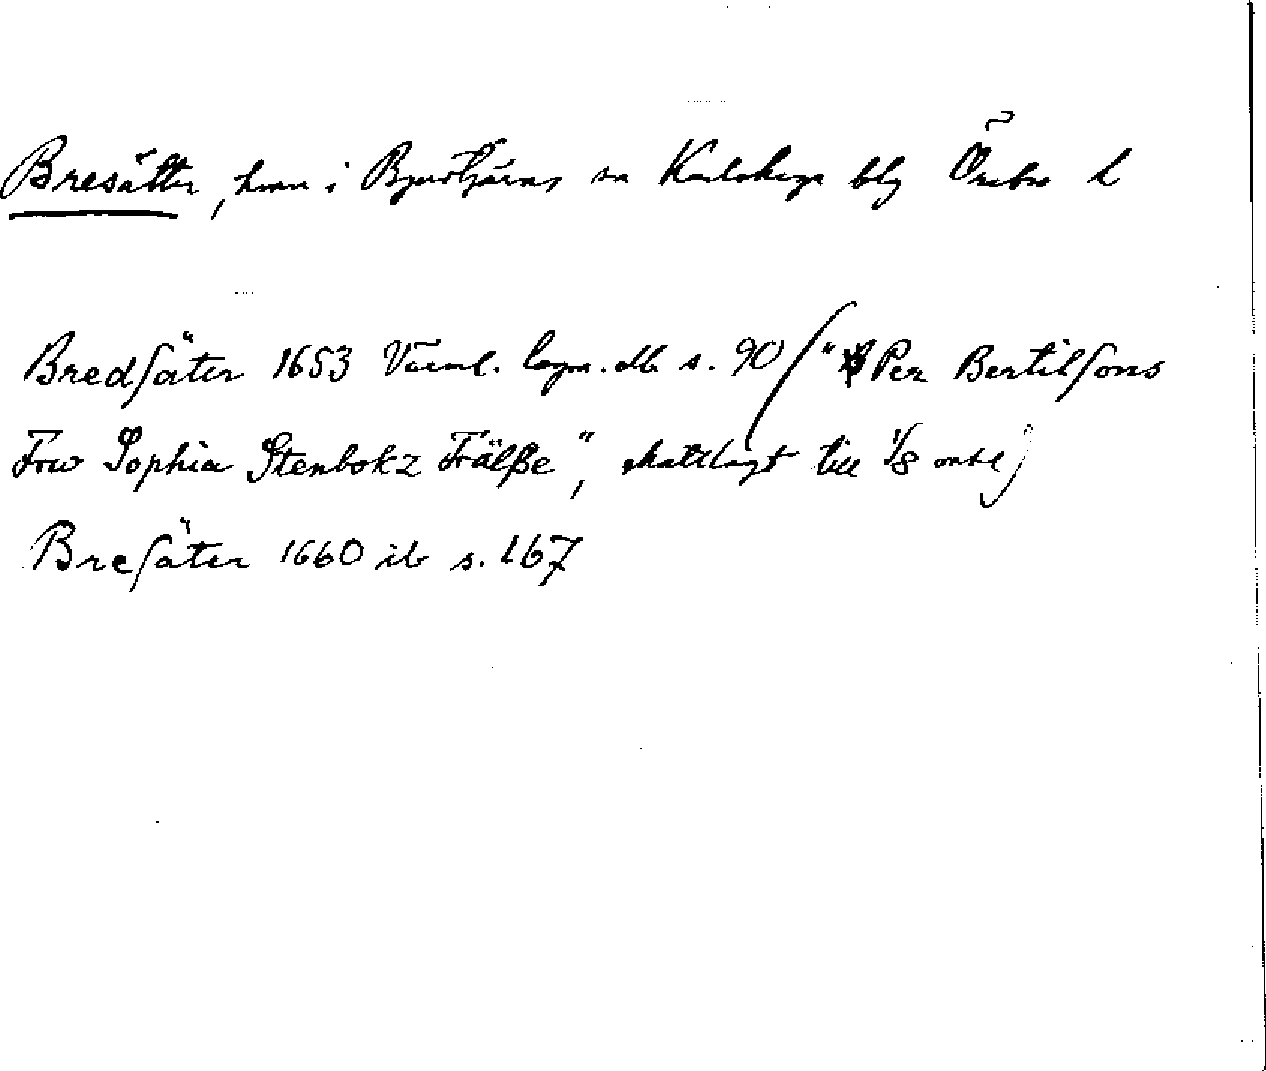 Bresätter, hmn i Bjurtjärns sn Karlskoga blg Örebro l
Bredſäter 1653 Värml. lagm. db s. 90 ("Per Bertilſons
Frw Sophia Stenbokz Frälße", skattlagt till 1/8 ontl)
Breſäter 1660 ib s. 167